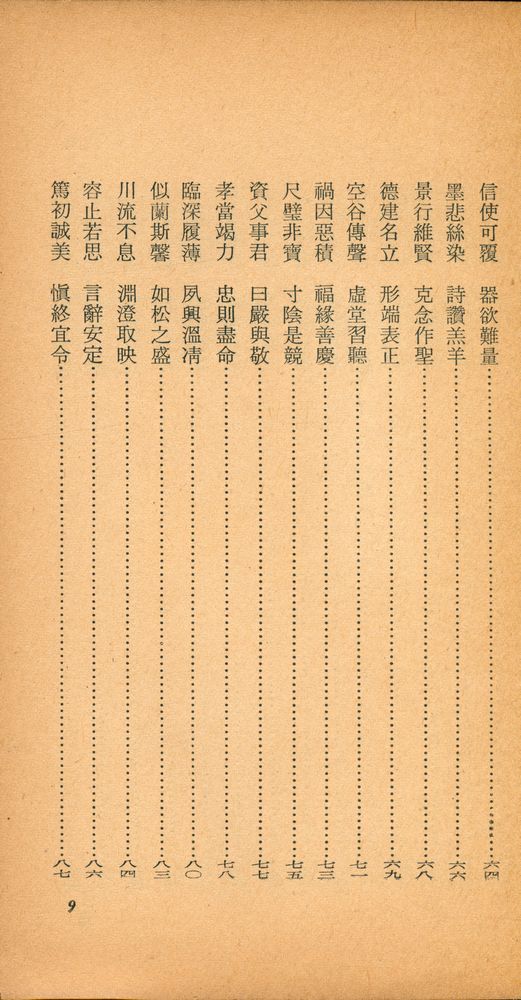 信使可覆　器欲難量……六四
墨悲絲染　詩讚羔羊……六六
景行維賢　克念作聖……六八
德建名立　形端表正……六九
空谷傳聲　虛堂習聽……七一
禍因惡積　福緣善慶……七三
尺璧非寶　寸陰是競……七五
資父事君　曰嚴與敬……七七
孝當竭力　忠則盡命……七八
臨深履薄　夙興溫凊……八〇
似蘭斯馨　如松之盛……八三
川流不息　淵澄取映……八四
容止若思　言辭安定……八六
篤初誠美　慎終宜令……八七
9